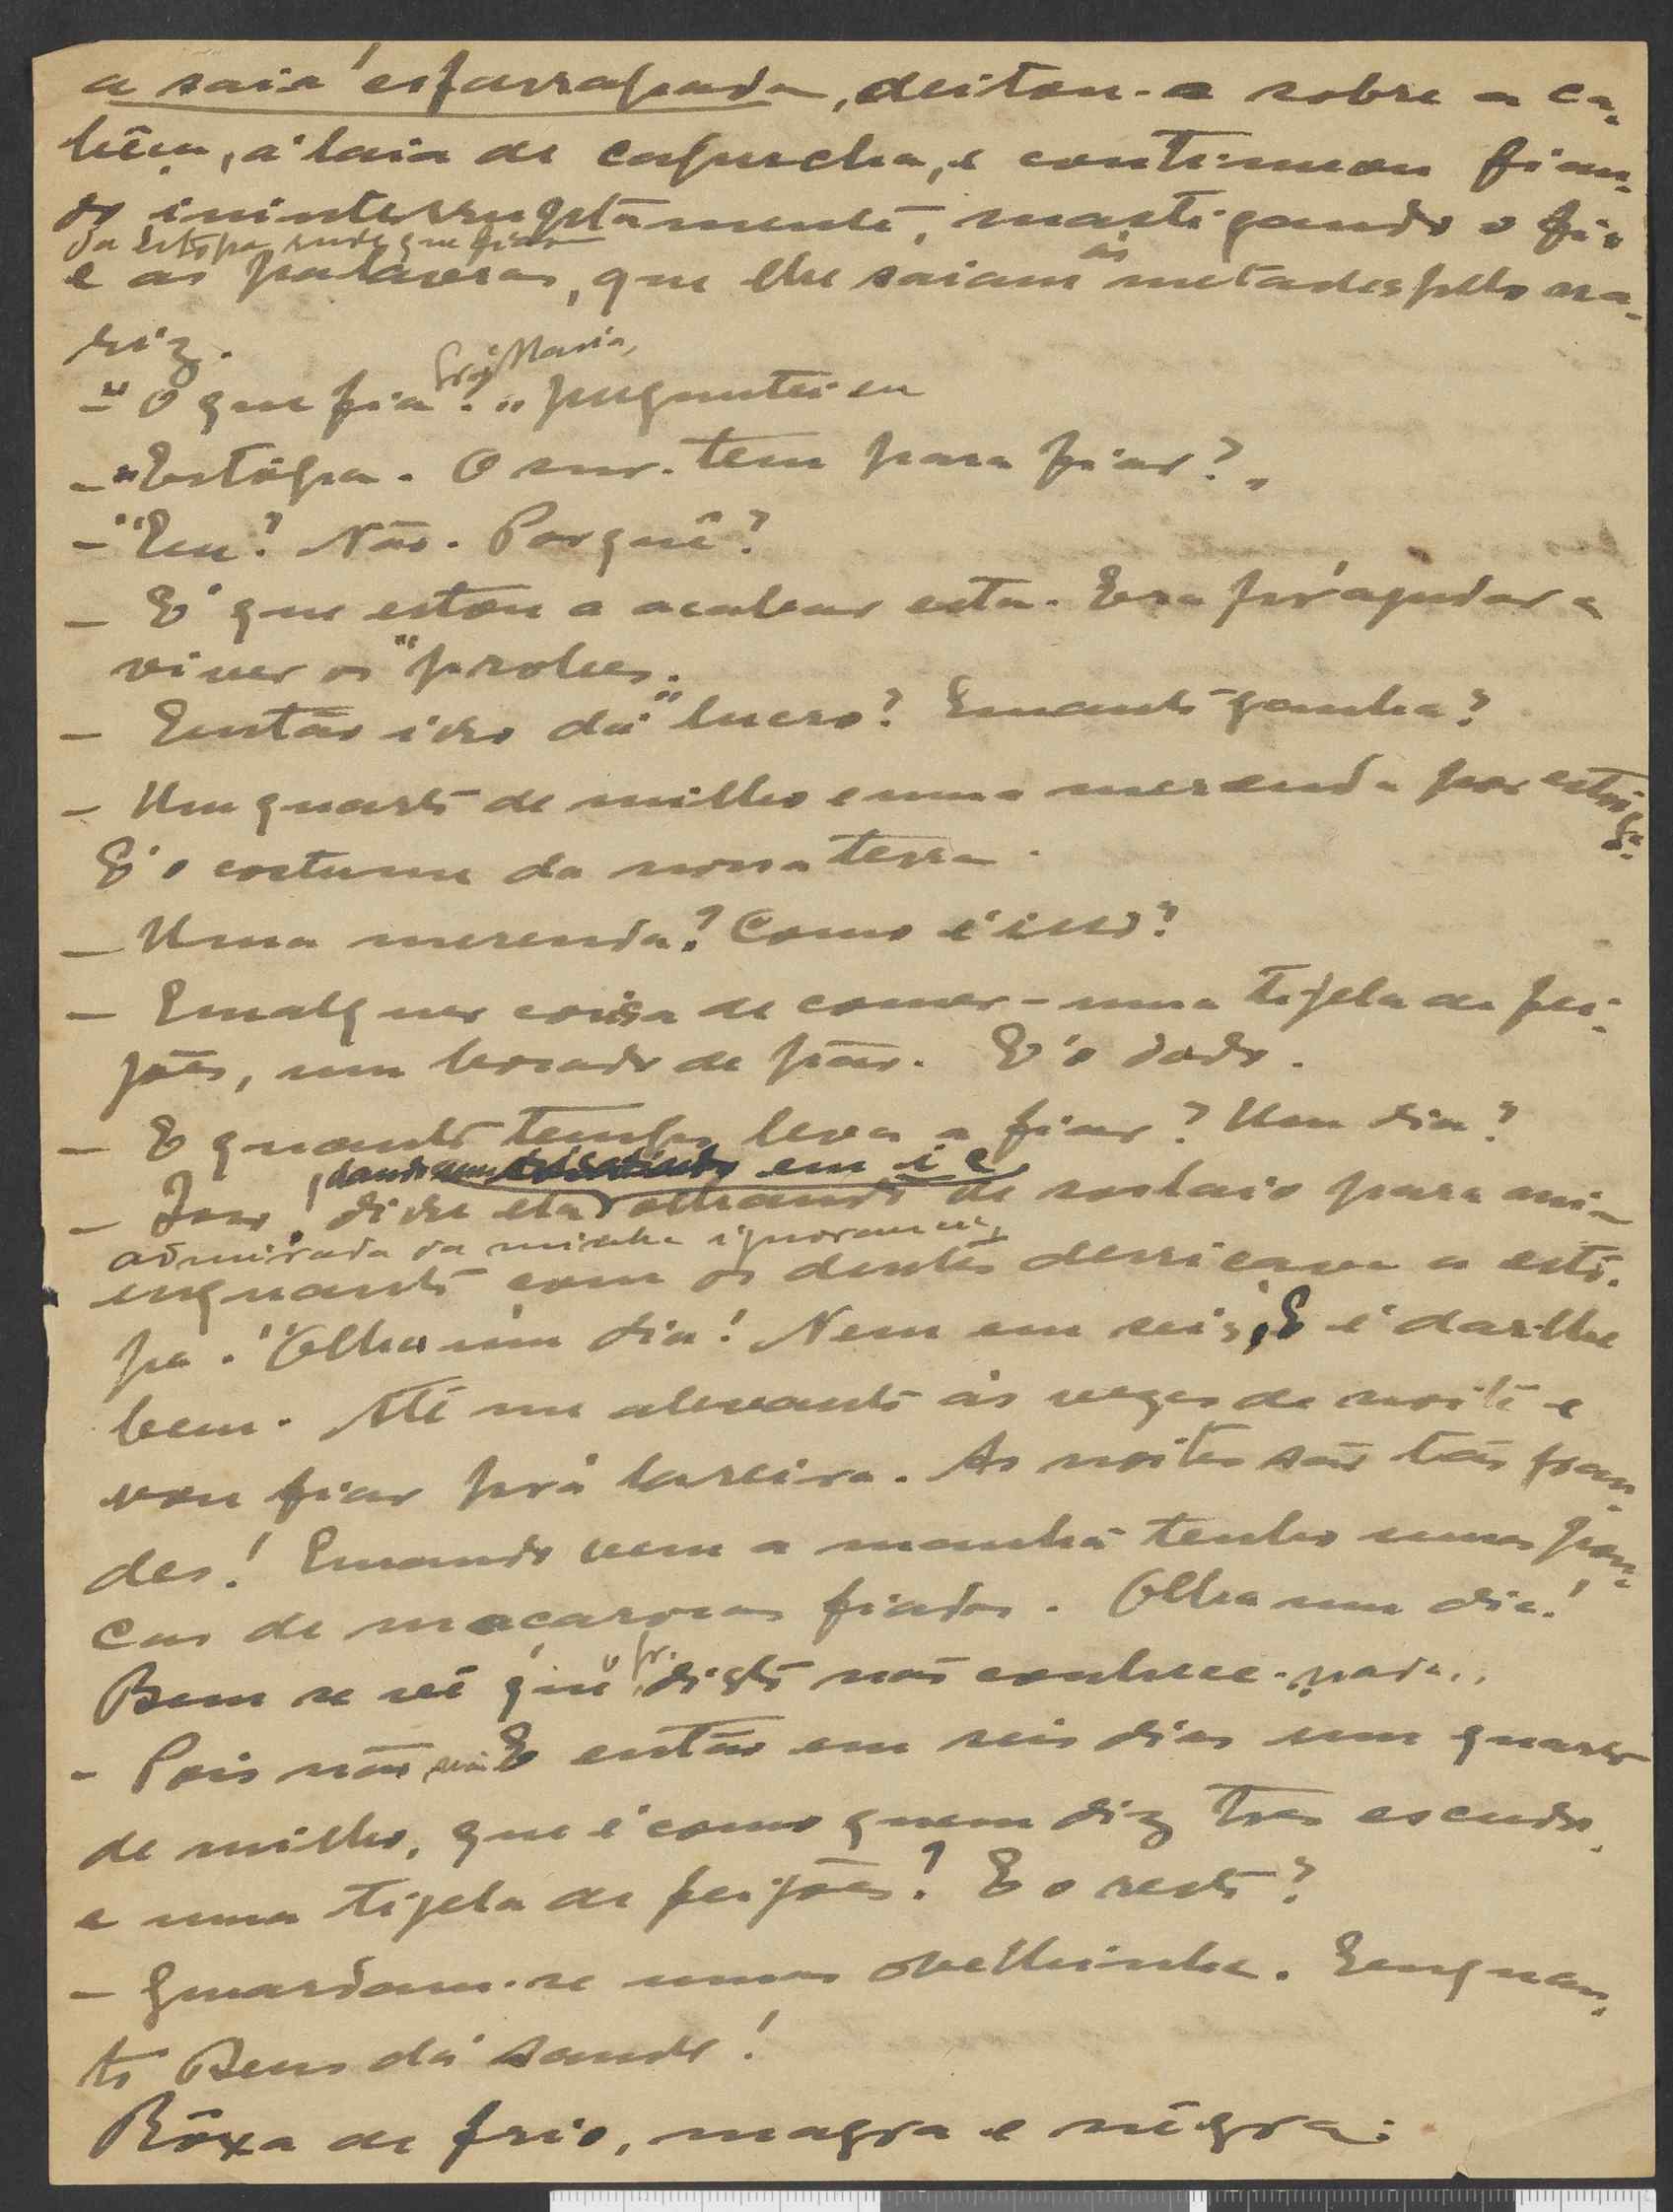 a saia esfarrapada, deitou-a sobre a ca-
bêça, á laia de capucha, e continuou fian-
do ininterruptamente, mastigando o fio
da estopa rude que fiava
e as palavras, que lhe saiam ás metades pelo na-
riz.
- "O que fia Srª Maria?" perguntei eu
- "Estôpa. O snr. tem para fiar?"
- "Eu? Não. Porquê?
- E' que estou a acabar esta. Era pr'ajudar a
viver os "probes".
- Então isso dá lucro? Quanto ganha?
- Um quarto de milho e uma merenda por estriga.
E' o costume da nossa terra.
- Uma merenda? Como é isso?
- Qualquer coisa de comer - uma tijela de fei-
jões, um bocado de pão. E' o dado.
- E quanto tempo leva a fiar? Um dia?
- disse ela olhando de soslaio para mim
admirada da minha ignorancia,
enquanto com os dentes derriçava a estô-
pa. "Olha um dia! Nem em seis, E é dar-lhe
bem. Até me alevanto ás vezes de noite e
vou fiar prá lareira. As noites são tão gran-
des! Quando vem a manhã tenho umas pou-
cas de maçarocas fiadas. Olha um dia!
Bem se vê que o sr. disto não conhece nada..
- Pois não E então em seis dias um quarto
de milho, que é como quem diz tres escudos,
e uma tijela de feijões? E o resto?
- Guardam-se umas ovelhinha. Enquan-
to Deus dá saude!
Rôxa de frio, magra e négra: